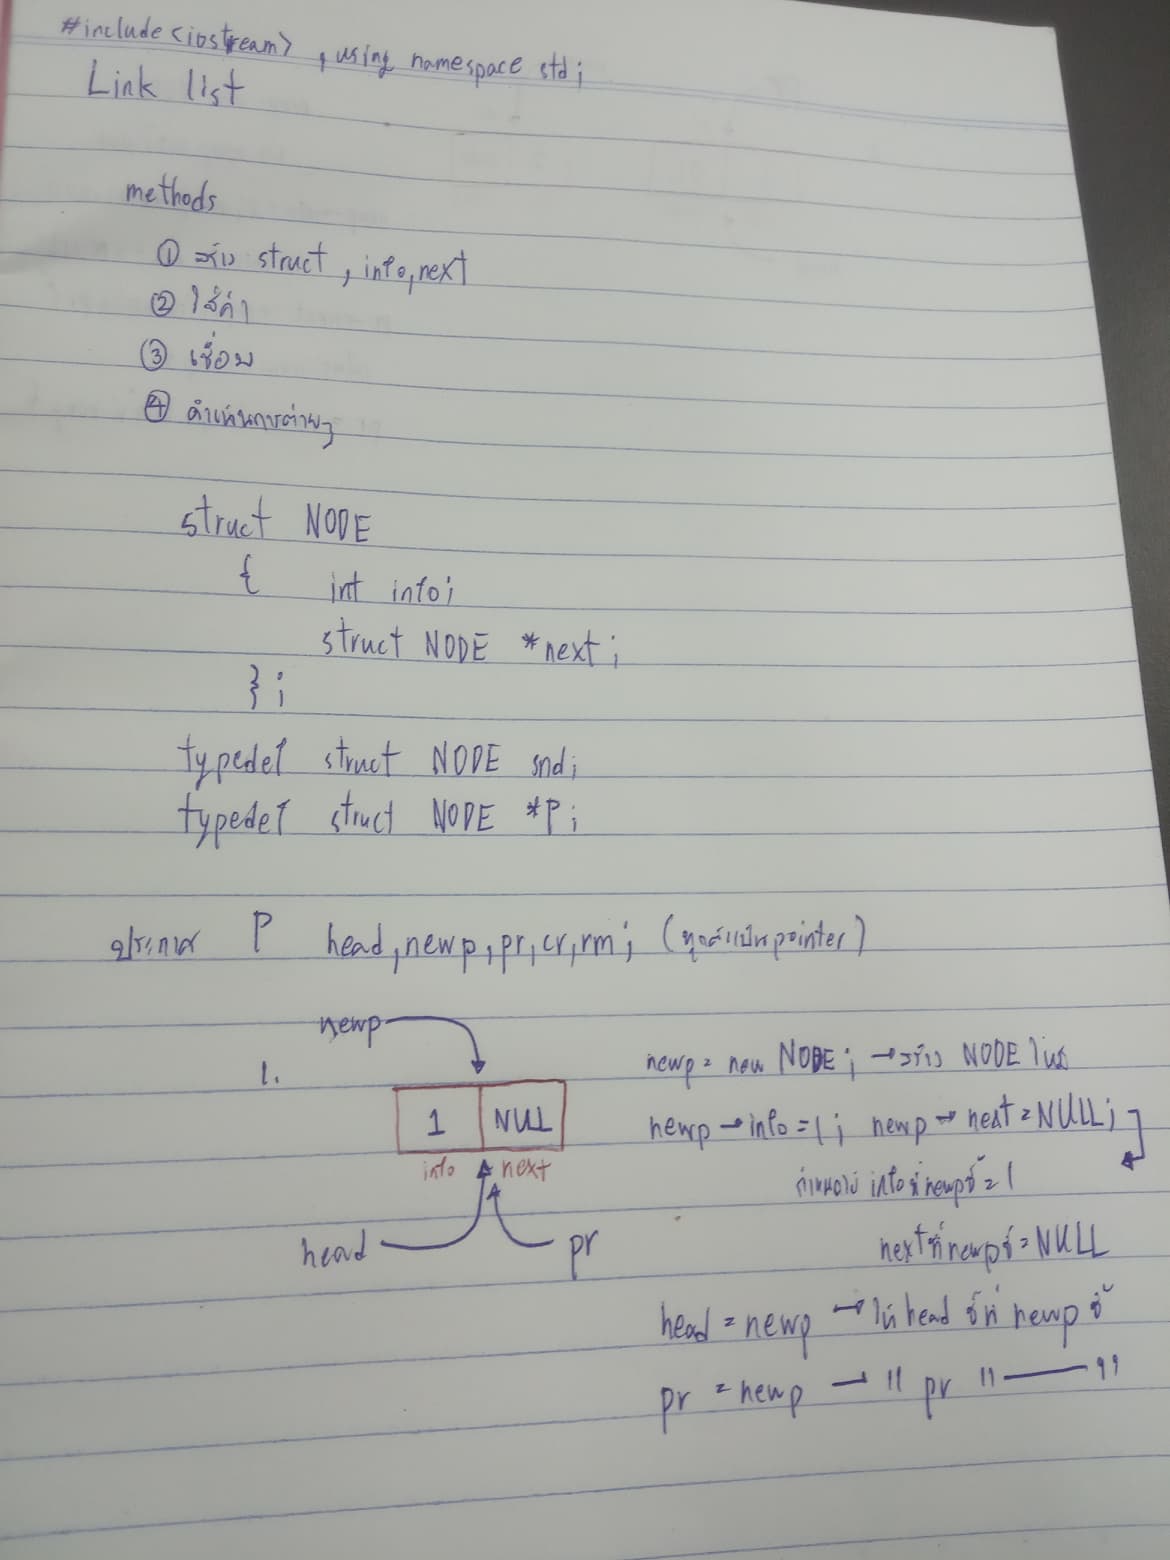 #include<iostream> , using namespace std;
Link list
methods
① สร้าง struct , info,next
② ใส่ค่า
③ เชื่อม
④ ดำเนินการต่างๆ
struct NODE
{ int info;
struct NODE *next;
};
typedef struct NODE snd;
typedef struct NODE *P;
ประกาศ P head,newp,pr,cr,rm; (ทุกตัวเป็น pointer)
newp
1.
1 NULL
info next
head pr
newp = new NODE; → สร้าง NODE ใหม่
newp → info = 1; newp → next = NULL;
กำหนดให้ info ที่ newp ชี้ = 1
next ที่ newp ชี้ = NULL
head = newp → ให้ head ชี้ที่ newp ชี้
pr = newp → " pr " — "